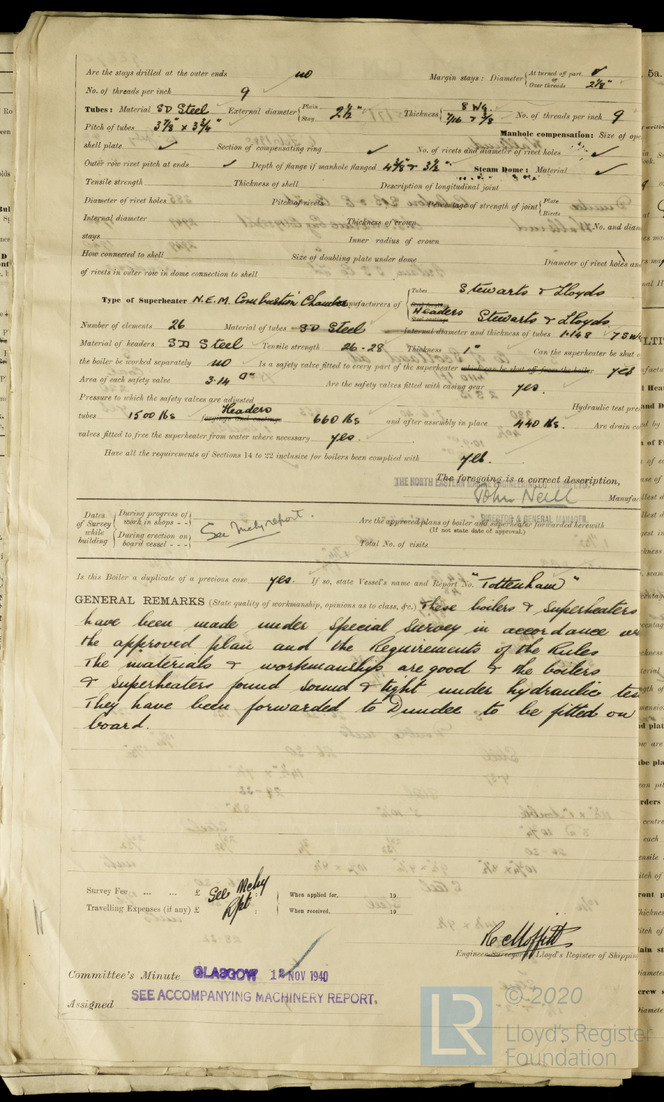 Are the stays drilled at the outer ends no Margin stays: Diameter { At turned off part, ✓ Over threads 2⅛"
No. of threads per inch 9
Tubes: Material S D Steel External diameter { Plain Stay 2½" Thickness { 8 WG 7/16 & 3/8 No. of threads per inch 9
Pitch of tubes 3⅞" x 3¾" Manhole compensation: Size of ope
shell plate ✓ Section of compensating ring ✓ No. of rivets and diameter of rivet holes ✓
Outer row rivet pitch at ends ✓ Depth of flange if manhole flanged 4⅜" & 3½" Steam Dome: Material ✓
Tensile strength Thickness of shell Description of longitudinal joint
Diameter of rivet holes Pitch of rivets Percentage of strength of joint { Plate Rivets
Internal diameter Thickness of crown No. and diam
stays Inner radius of crown
How connected to shell Size of doubling plate under dome Diameter of rivet holes and
of rivets in outer row in dome connection to shell
Type of Superheater N.E.M. Combustion Chamber Manufacturers of { Tubes Stewarts & Lloyds
Headers Stewarts & Lloyds
Number of elements 26 Material of tubes S D Steel Internal diameter and thickness of tubes 1.148 7 S W
Material of headers S D Steel Tensile strength 26-28 Thickness 1" Can the superheater be shut o
the boiler be worked separately no Is a safety valve fitted to every part of the superheater which can be shut off from the boiler yes
Area of each safety valve 3.14 □" Are the safety valves fitted with easing gear yes.
Pressure to which the safety valves are adjusted Hydraulic test pre
tubes 1500 lbs Headers 660 lbs and after assembly in place 440 lbs. Are drain c
valves fitted to free the superheater from water where necessary yes.
Have all the requirements of Sections 14 to 22 inclusive for boilers been complied with yes.
The foregoing is a correct description,
THE NORTH EASTERN MARINE ENGINEERING CO.
John Neill Manufac
DIRECTOR & GENERAL MANAGER
Dates of Survey while building { During progress of work in shops - - } { During erection on board vessel - - - } See Mchy report. Are the approved plans of boiler and superheater forwarded herewith
(If not state date of approval.)
Total No. of visits
Is this Boiler a duplicate of a previous case yes. If so, state Vessel's name and Report No. "Tottenham"
GENERAL REMARKS (State quality of workmanship, opinions as to class, &c.) These boilers & superheaters
have been made under Special Survey in accordance w
the approved plan and the Requirements of the Rules
The materials & workmanship are good & the boilers
& superheaters found sound & tight under hydraulic tes
They have been forwarded to Dundee to be fitted on
board.
Survey Fee ... ... £ See Mchy Rpt When applied for, 19
Travelling Expenses (if any) £ When received, 19
R C Moffitt
Engineer Surveyor to Lloyd's Register of Shippin
Committee's Minute GLASGOW 12 NOV 1940
Assigned SEE ACCOMPANYING MACHINERY REPORT.
LR © 2020
Lloyd's Register
Foundation